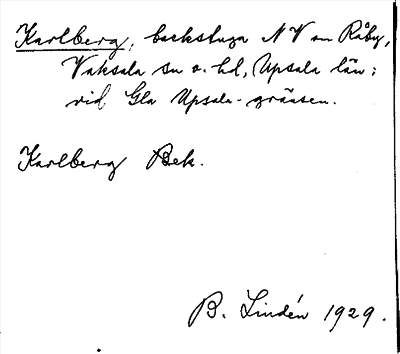 Karlberg, backstuga NV om Råby,
Vaksala sn o. hd, Upsala län;
vid Gla Upsala-gränsen.
Karlberg Bek.
B. Lindén 1929.